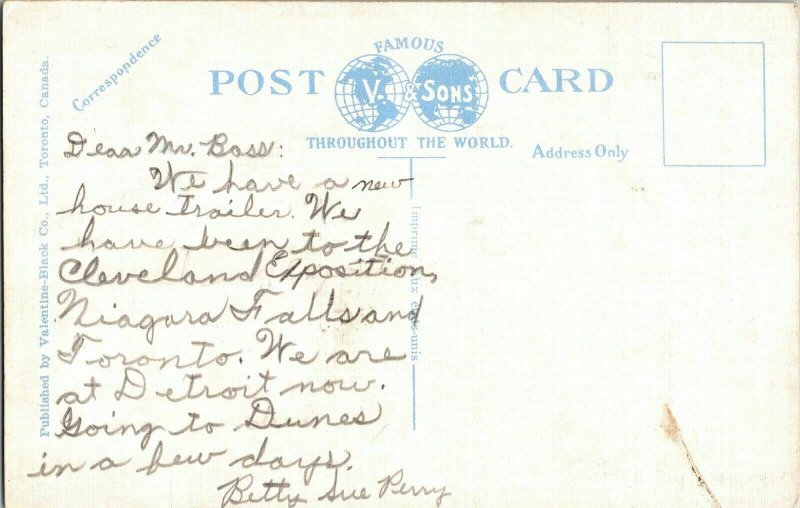 Correspondence
FAMOUS
POST CARD
V. & SONS
THROUGHOUT THE WORLD.
Address Only
Published by Valentine-Black Co., Ltd., Toronto, Canada.
Dear Mr. Bass:
We have a new
house trailer. We
have been to the
Cleveland Exposition,
Niagara Falls and
Toronto. We are
at Detroit now.
Going to Dunes
in a few days.
Betty Sue Perry
Imprimé aux états-unis